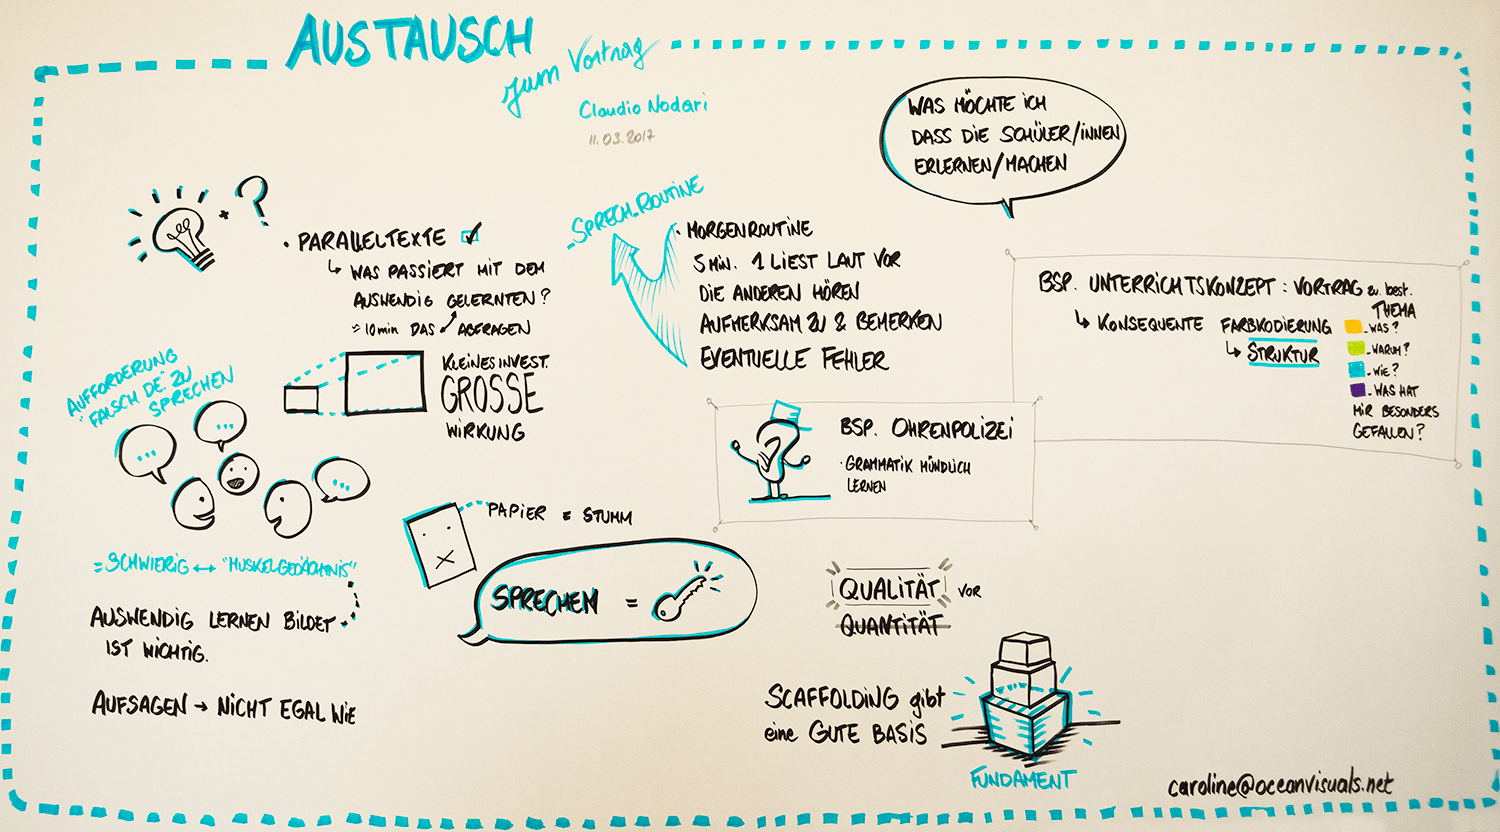 AUSTAUSCH
zum Vortrag
Claudio Nodari
11.03.2017
WAS MÖCHTE ICH
DASS DIE SCHÜLER/INNEN
ERLERNEN/MACHEN
?
• PARALLELTEXTE
↳ WAS PASSIERT MIT DEM
AUSWENDIG GELERNTEN?
≈ 10min DAS ABFRAGEN
KLEINES INVEST.
GROSSE
WIRKUNG
SPRECH-ROUTINE
• MORGENROUTINE
5 MIN. 1 LIEST LAUT VOR
DIE ANDEREN HÖREN
AUFMERKSAM ZU & BEMERKEN
EVENTUELLE FEHLER
BSP. UNTERRICHTSKONZEPT: VORTRAG zu best.
THEMA
↳ KONSEQUENTE FARBKODIERUNG
↳ STRUKTUR
- WAS?
- WARUM?
- WIE?
- WAS HAT
MIR BESONDERS
GEFALLEN?
AUFFORDERUNG
"FALSCH DE." ZU
SPRECHEN
...
...
...
= SCHWIERIG ↔ "MUSKELGEDÄCHTNIS"
AUSWENDIG LERNEN BILDET
IST WICHTIG.
AUFSAGEN → NICHT EGAL WIE
BSP. OHRENPOLIZEI
• GRAMMATIK MÜNDLICH
LERNEN
PAPIER = STUMM
SPRECHEN =
QUALITÄT VOR
QUANTITÄT
SCAFFOLDING gibt
eine GUTE BASIS
FUNDAMENT
caroline@oceanvisuals.net